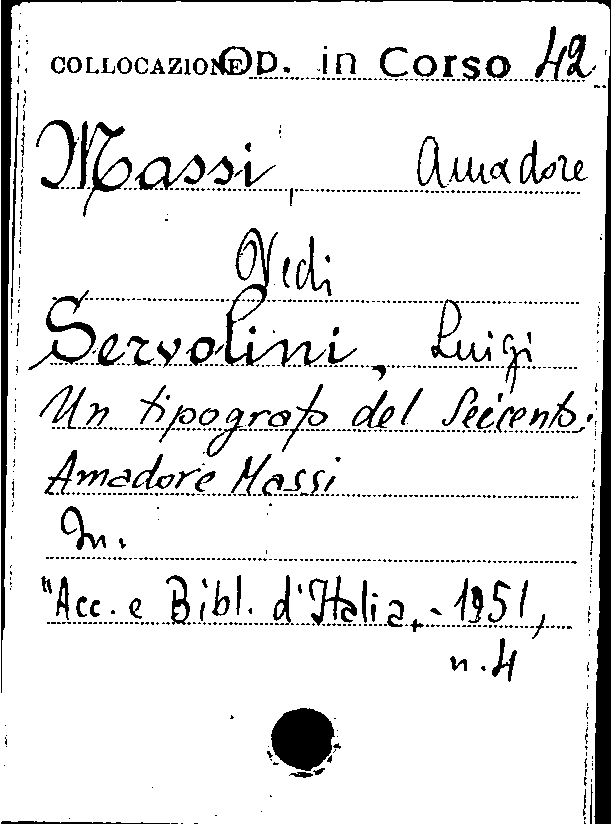 COLLOCAZIONE OD. in Corso 42
Massi, Amadore
Vedi
Servolini, Luigi
Un tipografo del Seicento:
Amadore Massi
In.
"Acc. e Bibl. d'Italia, - 1951,
n. 4